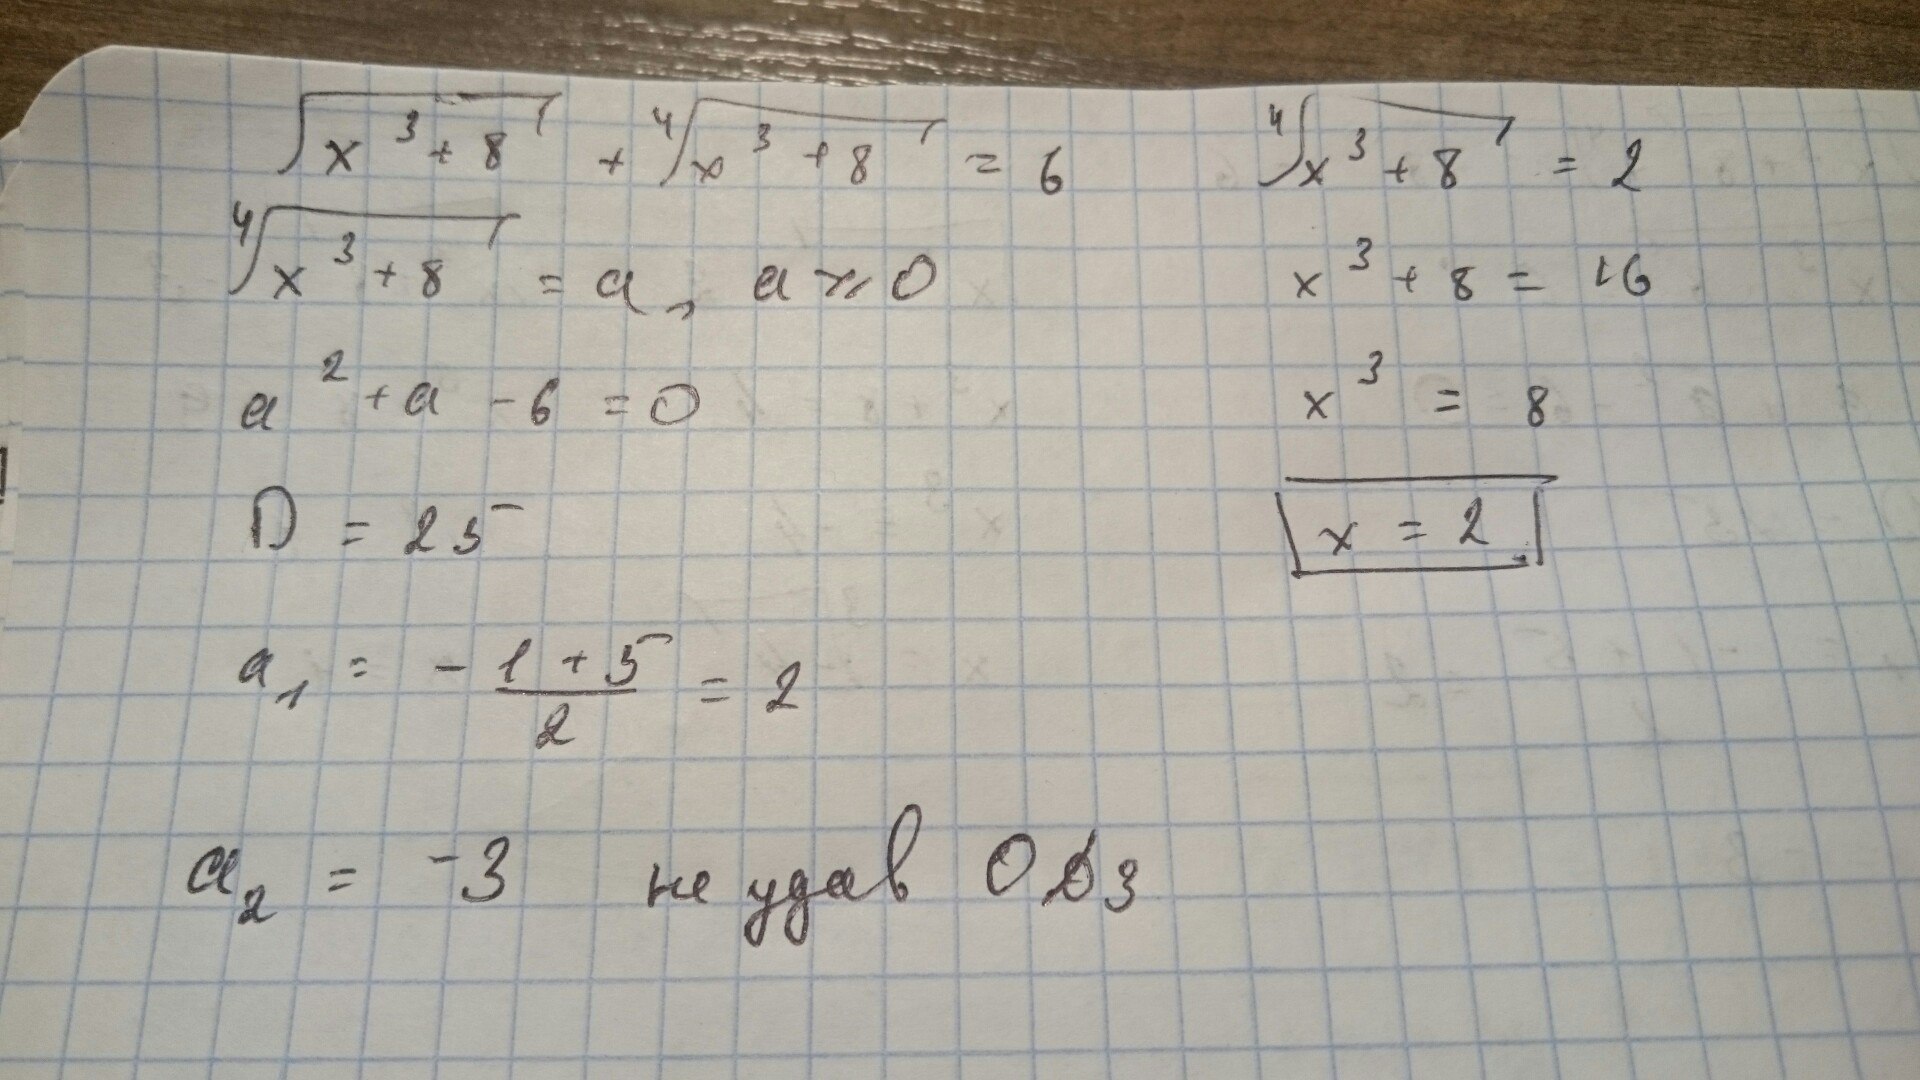 √(x³ + 8) + ⁴√(x³ + 8) = 6
⁴√(x³ + 8) = a, a ≥ 0
a² + a - 6 = 0
D = 25
a₁ = (-1 + 5)/2 = 2
a₂ = -3 не удав ОДЗ
⁴√(x³ + 8) = 2
x³ + 8 = 16
x³ = 8
x = 2